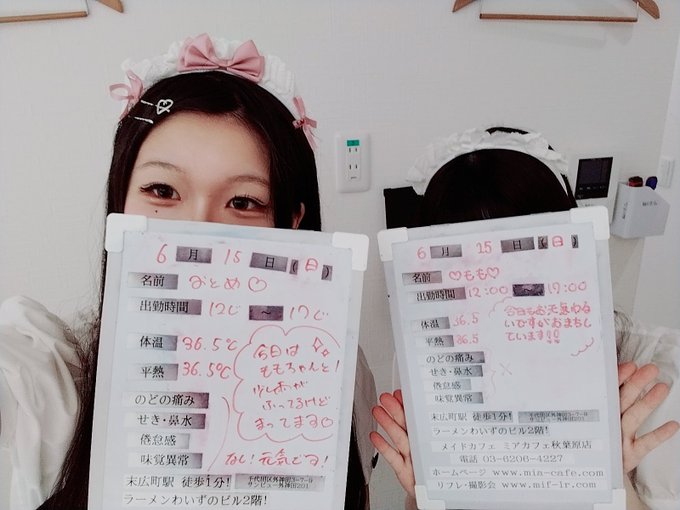 6 月 15 日 (日)
名前 おとめ♡
出勤時間 12じ ～ 17じ
体温 36.5℃
平熱 36.5℃
今日は
ももちゃんと!
少し雨が
ふってるけど
まってます♡
のどの痛み
せき・鼻水
倦怠感
味覚異常
なし!元気です!
末広町駅 徒歩1分! 千代田区外神田3-7-9
サンビュー外神田201
ラーメンわいずのビル2階!
6 月 15 日 (日)
名前 ♡もも♡
出勤時間 12:00 ～ 17:00
体温 36.5
平熱 36.5
今日もお天気わる
いですがおまちし
ています!!
のどの痛み
せき・鼻水
倦怠感
味覚異常
×
末広町駅 徒歩1分! 千代田区外神田3-7-9
ラーメンわいずのビル2階!
メイドカフェ ミアカフェ秋葉原店
電話 03-6206-4227
ホームページ www.mia-cafe.com
リフレ・撮影会 www.mif-lr.com